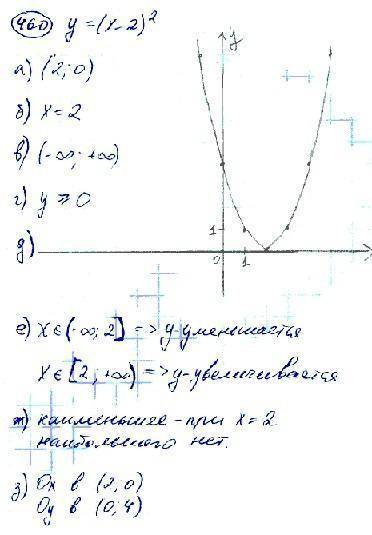 460 y = (x-2)²
а) (2;0)
б) x = 2
в) (-∞; +∞)
г) y ≥ 0
д)
y
1
1
е) x ∈ (-∞; 2] => y-уменьшается
x ∈ [2; +∞) => y-увеличивается
ж) наименьшее - при x = 2
наибольшего нет.
з) Ox в (2; 0)
Oy в (0; 4)